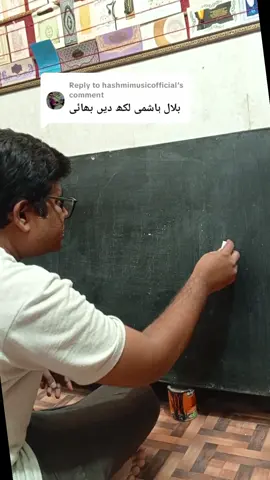 Reply to hashmimusicofficial's
comment
بلال ہاشمی لکھ دیں بھائی